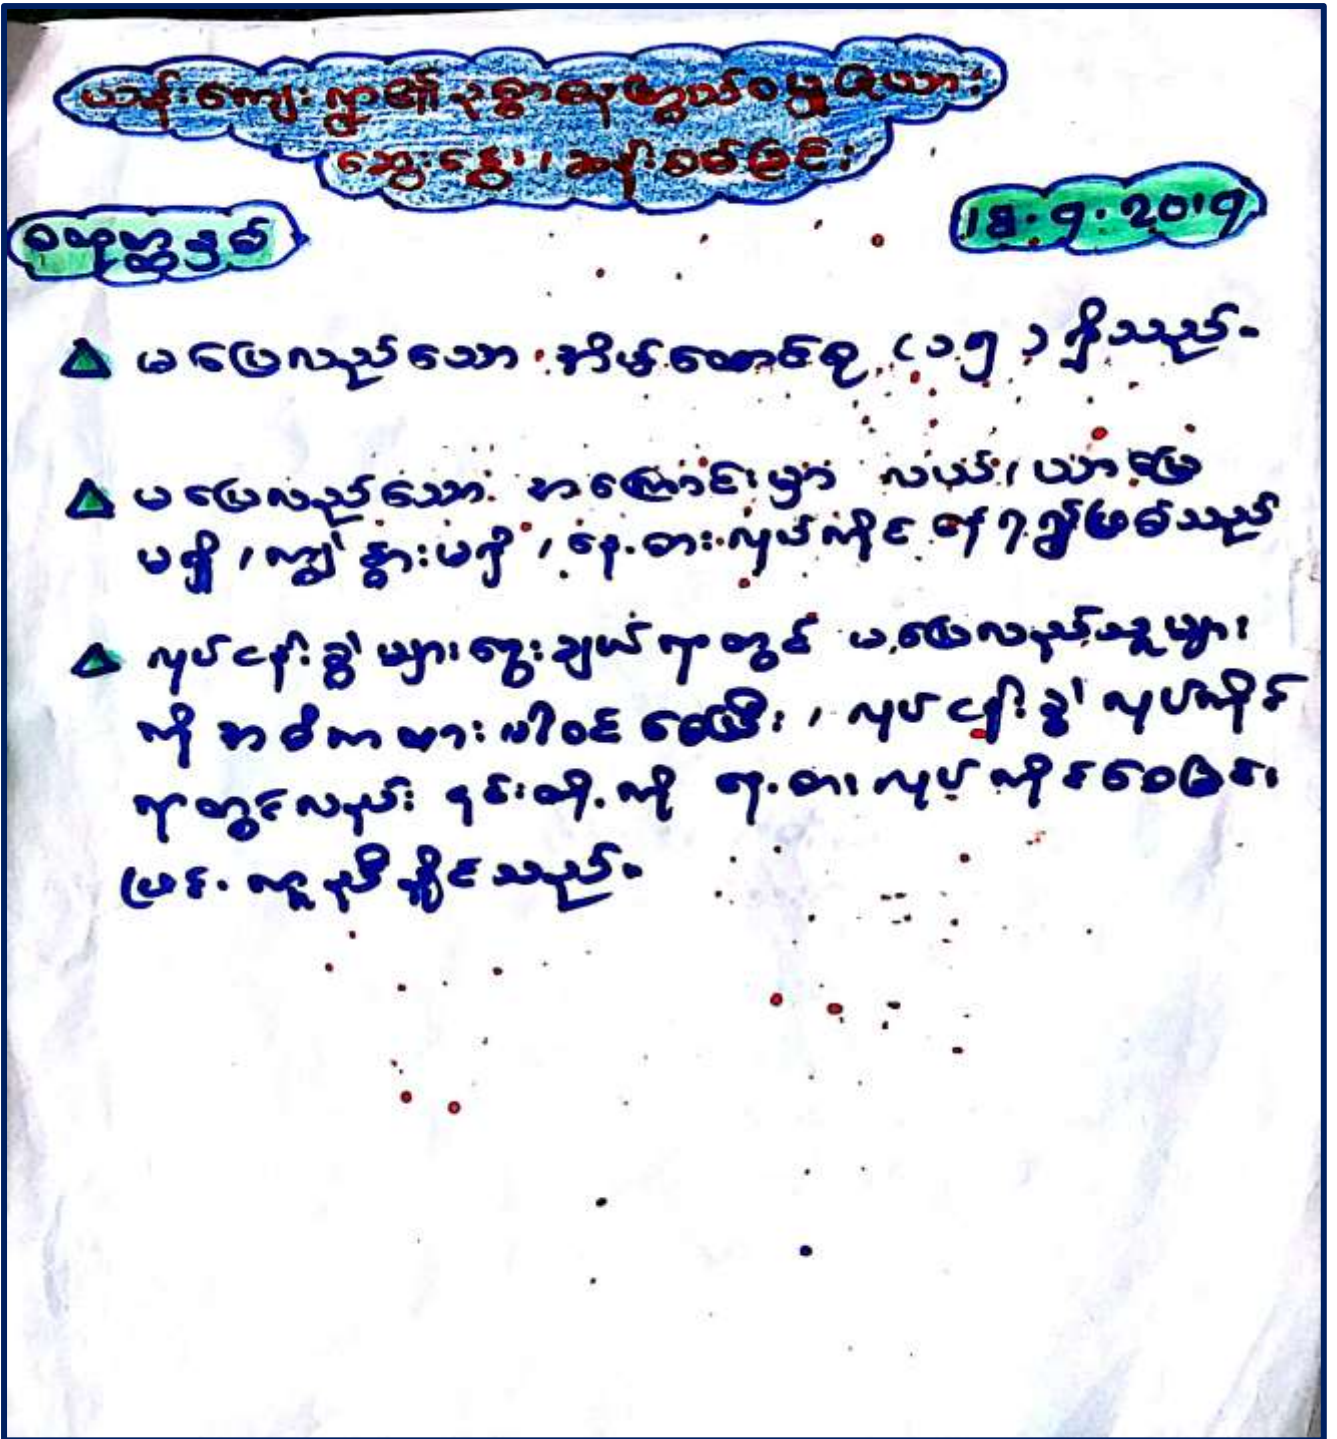 ယာန်းကျေးရွာ၏ဒုစ္စာဆုတ္တသ်ဝမှုဇယား
ဆွေးနွေး၊ ဆန်းစစ်ခြင်း
စတုတ္ထနှစ်
18.9.2019
မပြေလည်သော အိမ်ထောင်စု (၁၅) ရှိသည်။
မပြေလည်သော အကြောင်းမှာ လယ်၊ ယာမြေ
မရှိ၊ ကျွဲနွားမရှိ၊ နေ့စားလုပ်ကိုင်နေ၍ဖြစ်သည်
လုပ်ငန်းခွဲများရွေးချယ်ရာတွင် မပြေလည်သူများ
ကို အဓိကထားပါဝင်စေပြီး၊ လုပ်ငန်းခွဲလုပ်ကိုင်
ရာတွင်လည်း ၎င်းတို့ကို နေ့စားလုပ်ကိုင်စေခြင်း
ဖြင့် ကူညီနိုင်သည်။